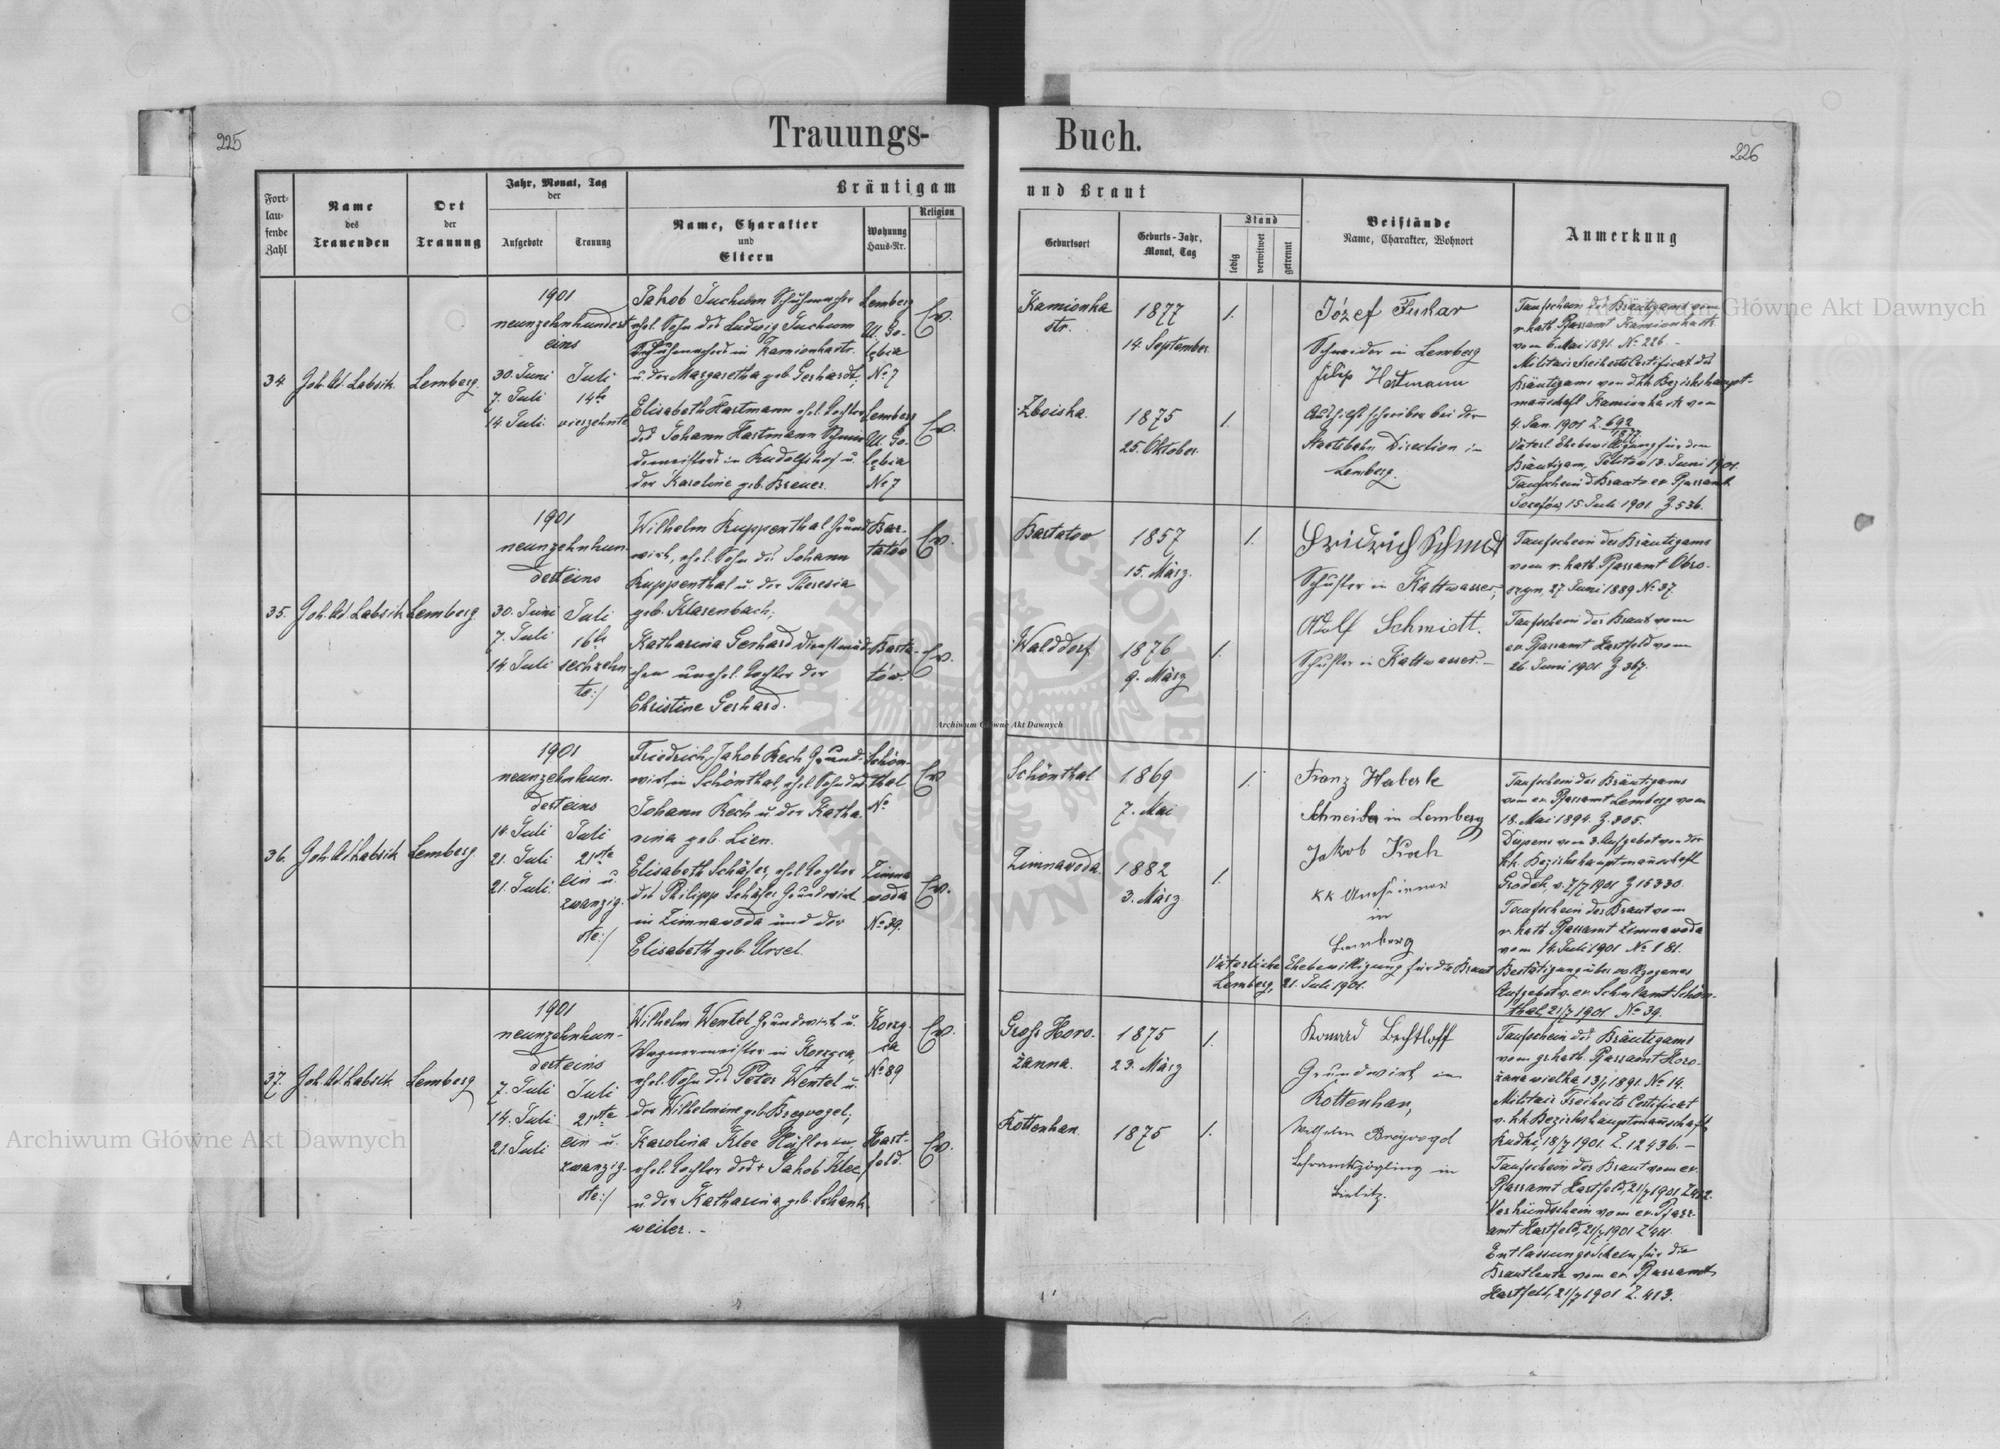 225
Trauungs-
Buch.
226
Fort-
lau-
fende
Zahl
Name
des
Trauenden
Ort
der
Trauung
Jahr, Monat, Tag
der
Aufgebote
Trauung
Bräutigam
und Braut
Name, Charakter
und
Eltern
Wohnung
Haus-Nr.
Religion
Geburtsort
Geburts-Jahr,
Monat, Tag
Stand
ledig
verwitwet
getrennt
Beistände
Name, Charakter, Wohnort
Anmerkung
34
Joh. Ad. Labsik
Lemberg.
1901
neunzehnhundert
eins
30. Juni
7. Juli
14. Juli
Juli
14te
vierzehnte
Jakob Juchum Schuhmacher
ehel. Sohn des Ludwig Juchum
Schuhmachers in Kamionka str.
u. der Margaretha geb. Gerhardt,
Lemberg
Ul. Go-
łębia
No 7
Ev.
Elisabeth Hartmann ehel. Tochter
des Johann Hartmann Schnei-
dermeisters in Rudolfshof u.
der Karoline geb. Breuer.
Lemberg
Ul. Go-
łębia
No 7
Ev.
Kamionka
str.
1877
14. September
1.
Zboiska
1875
25. Oktober
1.
Józef Fukar
Schneider in Lemberg
Filip Hartmann
Aushilfsschreiber bei der
Staatsbahn Direction in
Lemberg.
Taufschein des Bräutigams vom
r. kath. Pfarramt Kamionka str.
vom 6. Mai 1891. No 226. -
Militair Freiheits Certificat des
Bräutigams von d. kk. Bezirkshaupt-
mannschaft Kamionka str. vom
4. Jan. 1901 Z. 692
1877
Väterl. Ehebewilligung für den
Bräutigam, 13. Juni 1901.
Taufschein d. Braut v. ev. Pfarramt
Josefów, 15. Juli 1901. Z. 536.
35.
Joh. Ad. Labsik
Lemberg
1901
neunzehnhun-
derteins
30. Juni
7. Juli
14. Juli
Juli
16te
sechzehn-
te:/
Wilhelm Kuppenthal Grund-
wirt, ehel. Sohn des Johann
Kuppenthal u. der Theresia
geb. Klarenbach;
Bar-
tatów
Ev.
Katharina Gerhard Dienstmäd-
chen unehel. Tochter der
Christine Gerhard.
Barta-
tów
Ev.
Bartatow
1857
15. März.
1.
Walddorf
1876
9. März
1.
Fridrich Schmidt
Schuster in Kaltwasser,
Adolf Schmidt.
Schuster in Kaltwasser. -
Taufschein des Bräutigams
vom r. kath. Pfarramt Obro-
szyn, 27. Juni 1889 No 37.
Taufschein der Braut vom
ev. Pfarramt Hartfeld vom
26. Juni 1901. Z. 367.
36.
Joh. Ad. Labsik
Lemberg
1901
neunzehnhun-
derteins
14. Juli
21. Juli
21. Juli
Juli
21ste
ein u.
zwanzig-
ste:/
Friedrich Jakob Rech Grund-
wirt in Schönthal, ehel. Sohn des
Johann Rech u. der Katha-
rina geb. Lien.
Schön-
thal
No
Ev
Elisabeth Schäfer, ehel. Tochter
des Philipp Schäfer Grundwirt
in Zimnawoda und der
Elisabeth geb. Ursel.
Zimna
woda
No 39.
Ev.
Schönthal
1869
7. Mai
1.
Zimnawoda
1882
3. März
1.
Franz Haberle
Schneider in Lemberg
Jakob Koch
KK Amtsdiener
in
Lemberg
Väterliche Ehebewilligung für die Braut
Lemberg, 21. Juli 1901.
Taufschein des Bräutigams
vom ev. Pfarramt Lemberg vom
18. Mai 1894. Z. 305.
Dispens vom 3. Aufgebot von der
kk. Bezirkshauptmannschaft
Grodek, v. 7/7 1901 Z 15330.
Taufschein der Braut vom
r. kath. Pfarramt Zimnawoda
vom 14. Juli 1901 No 181.
Bestätigung über vollzogenes
Aufgebot v. ev. Schulamt Schön-
thal 21/7 1901 No 39.
37.
Joh. Ad. Labsik
Lemberg
1901
neunzehnhun-
derteins
7. Juli
14. Juli
21. Juli
Juli
21ste
ein u.
zwanzig-
ste:/
Wilhelm Wentel Grundwirt u.
Wagnermeister in Konyca,
ehel. Sohn des Peter Wentel u.
der Wilhelmine geb. Breyvogel;
No 89
Ev.
Karolina Klee
ehel. Tochter des † Jakob Klee,
u. der Katharina geb. Schank-
weiler. -
Hart-
feld.
Ev.
Gross Horo-
żanna.
1875
23. März
1.
Rottenhan
1875
1.
Konrad Bechtloff
Grundwirt in
Rottenhan,
Wilhelm Breyvogel
Lehramtszögling in
Bielitz.
Taufschein des Bräutigams
vom gr. kath. Pfarramt Horo-
żana wielka 13/1 1891. No 14.
Militair Freiheits Certificat
v. kk Bezirkshauptmannschaft
Rudki, 18/7 1901. Z. 12436. -
Taufschein der Braut vom ev.
Pfarramt Hartfeld, 21/7 1901
Verkündschein vom ev. Pfarr-
amt Hartfeld, 21/7 1901 Z. 411
Entlassungsschein für die
Brautleute vom ev. Pfarramt
Hartfeld, 21/7 1901 Z. 413.
Archiwum Główne Akt Dawnych
Archiwum Główne Akt Dawnych
Archiwum Główne Akt Dawnych
ARCHIWUM GŁÓWNE AKT DAWNYCH